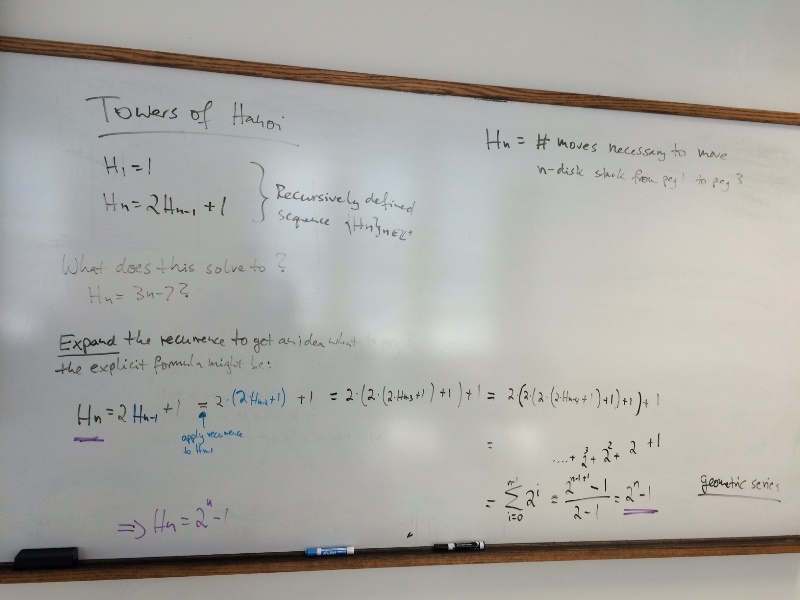 Towers of Hanoi
H₁ = 1
Hn = 2Hn-1 + 1
Recursively defined
sequence {Hn}n∈ℤ⁺
Hn = # moves necessary to move
n-disk stack from peg 1 to peg 3
What does this solve to?
Hn = 3n-2?
Expand the recurrence to get an idea what
the explicit formula might be:
Hn = 2Hn-1 + 1 = 2·(2Hn-2+1) + 1 = 2·(2·(2·Hn-3+1)+1)+1 = 2·(2·(2·(2·Hn-4+1)+1)+1)+1
apply recurrence
to Hn-1
= ....+ 2³ + 2² + 2 + 1
= ∑_{i=0}^{n-1} 2^i = (2^{n-1+1} - 1)/(2-1) = 2^n - 1
geometric series
⇒ Hn = 2^n - 1